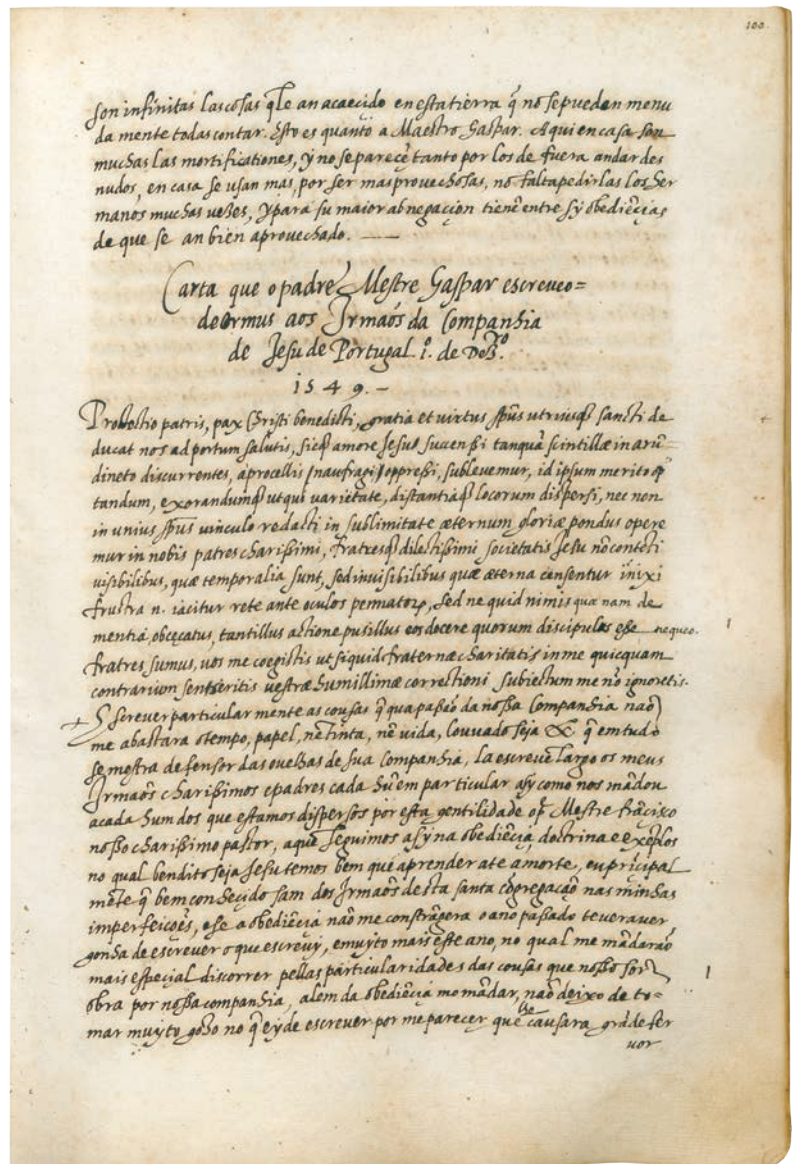 100
son infinitas las cosas q̃ le an acaecido en esta tierra q̃ no se pueden menu
da mente todas contar. Esto es quanto a Maestro Gaspar. Aqui en casa son
muchas las mortificationes, y no se parecẽ tanto por los de fuera andar des
nudos, en casa se usan mas, por ser mas provechosas, no falta pedirlas los her
manos muchas vezes, y para su maior abnegacion tienẽ entre sy obediẽcias
de que se an bien aprovechado. —
Carta que o padre Mestre Gaspar escreveo=
de Ormus aos Irmaõs da Companhia
de Jesu de Portugal. i.º de
1549. —
Protectio patris, pax Christi benedicti, gratia et virtus spũs utriusq̃ sancti de
ducat nos ad portum salutis, sicq̃ amore Jesus succensi tanquã scintillæ in arũ=
dineto discurrentes, a procellis (naufragi) oppressi, sublevemur, id ipsum merito op
tandum, exorandumq̃ ut qui varietate, distantiaq̃ locorum dispersi, nec non
in unius spũs vinculo redacti in sublimitate æternum gloriæ pondus opere
mur in nobis patres charissimi, fratresq̃ dilectissimi societatis Jesu nõ contẽti
visibilibus, quæ temporalia sunt, sed invisibilibus quæ æterna censentur inixi
frustra n. iacitur rete ante oculos pennatorȝ, sed ne quid nimis quæ nam de
mentia, obcęcatus, tantillus actione pusillus eos docere quorum discipulus esse nequeo.
fratres sumus, vos me coegistis ut siquid fraternæ charitatis in me quicquam
contrarium senseritis vestræ humillimæ correctioni subiectum me nõ ignoretis.
Escrever particular mente as cousas q̃ qua passo da nossa Companhia naõ
me abastara o tempo, papel, nẽ tinta, nẽ vida, louvado seja q̃ em tudo
se mostra defensor das ovelhas de sua companhia, la escrevẽ largo os meus
Irmaõs charissimos e padres cada hũ em particular assy como nos mãdou
a cada hum dos que estamos dispersos por esta gentilidade o p.e Mestre frãcisco
nosso charissimo pastor, a que seguimos assy na obediẽcia, doctrina e exẽplos
no qual bendito seja Jesu temos bem que aprender ate a morte, eu prĩcipal
mẽte q̃ bem conhecido sam dos Irmaõs desta santa cõgregaçaõ nas minhas
imperfeiçoẽs, e se a obediẽcia naõ me constrãgera o ano passado tevera ver
gonha de escrever o que escrevy, e muyto mais este ano, no qual me mãdaraõ
mais especial discorrer pellas particularidades das cousas que nosso sõr
obra por nossa companhia, alem da obediẽcia mo mãdar, naõ deixo de to=
mar muyto gozo no q̃ ey de escrever por me parecer que lhe causara grãde fer
vor